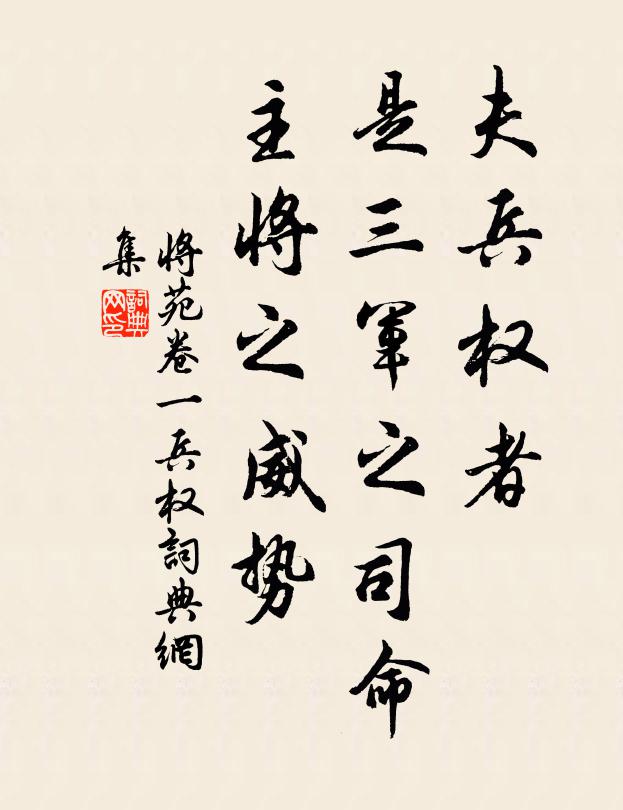 夫兵权者
是三軍之司命
主將之威势
將苑卷一兵权詞典網
集
詞典网印